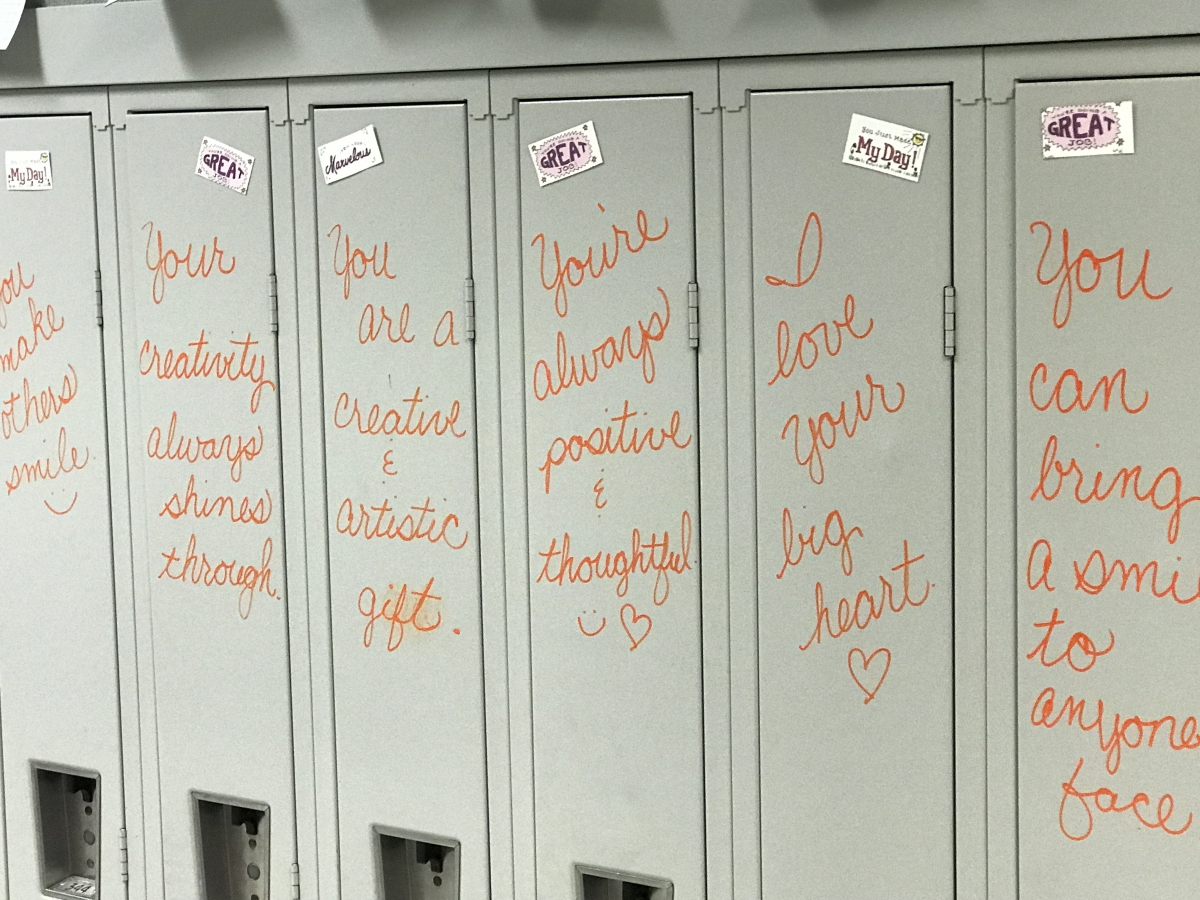 My Day!
you
make
others
smile.
GREAT
JOB!
Your
creativity
always
shines
through.
Marvelous
You
are a
creative
&
artistic
gift.
GREAT
JOB!
You're
always
positive
&
thoughtful.
You Just Made
My Day!
I
love
your
big
heart.
YOU'RE DOING A
GREAT
JOB!
You
can
bring
a smi
to
anyone
face